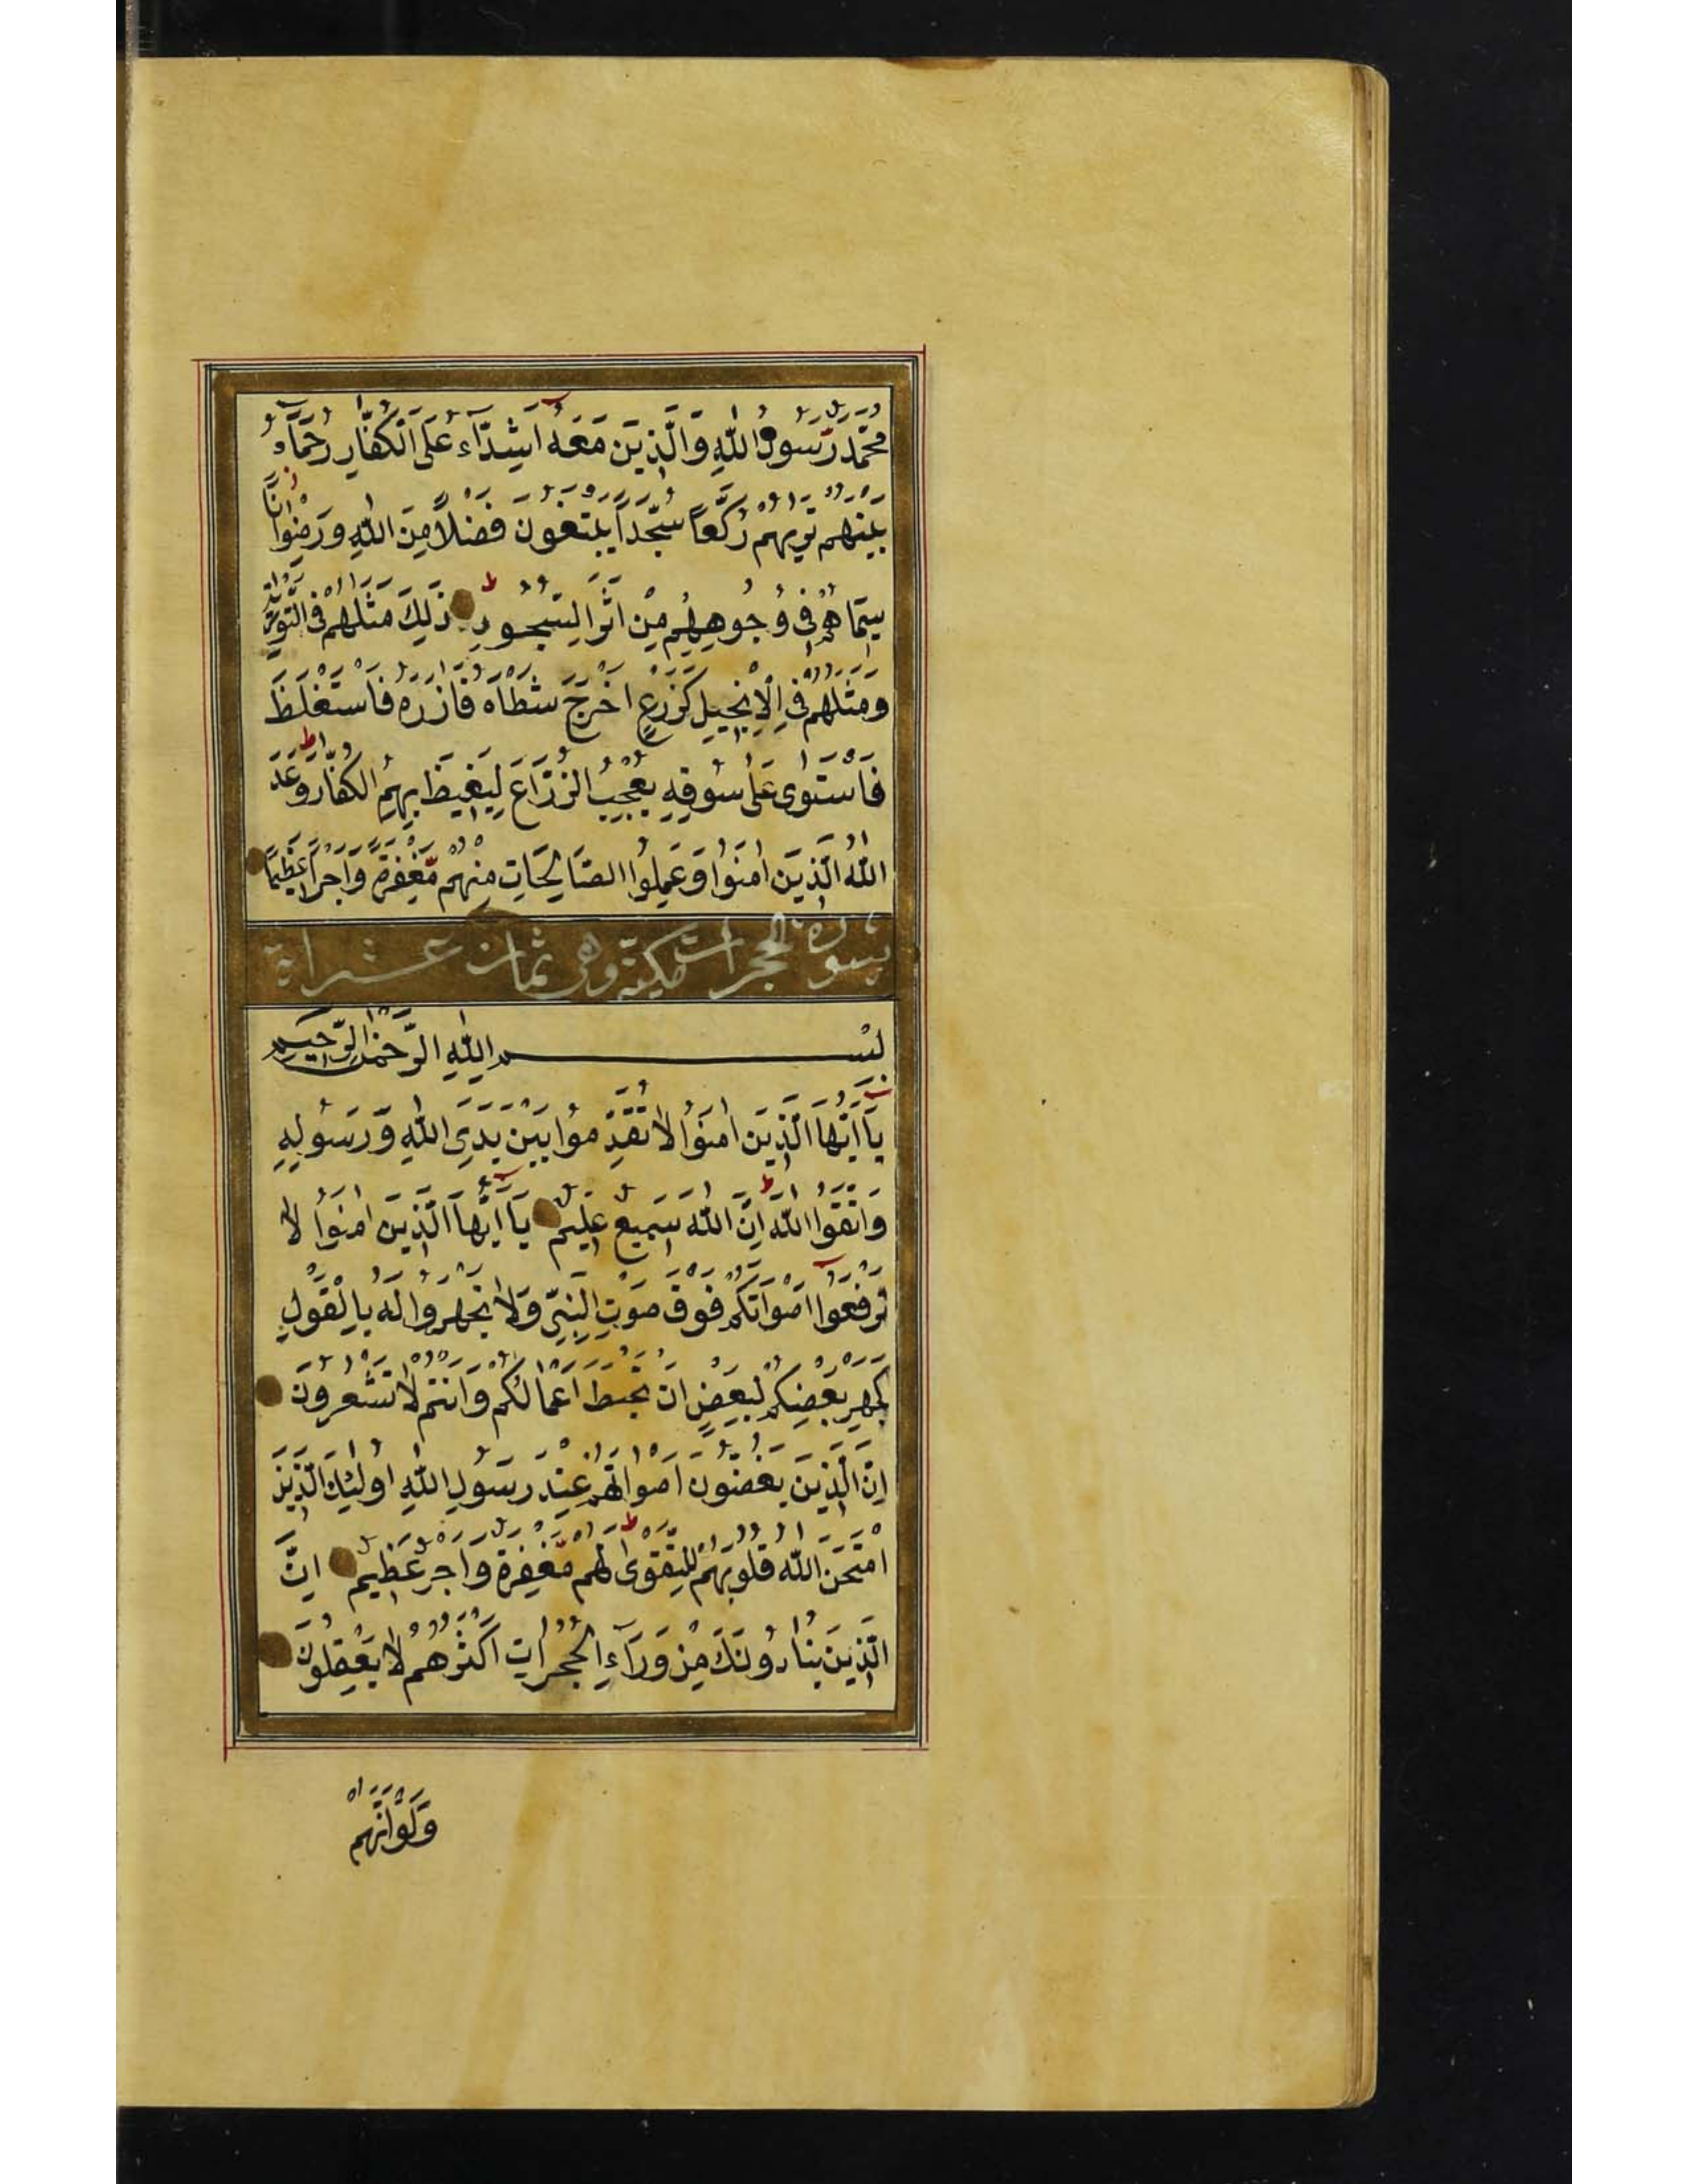 مُحَمَّدٌ رَّسُولُ اللّٰهِ وَالَّذِينَ مَعَهُ اَشِدَّآءُ عَلَى الْكُفَّارِ رُحَمَآءُ
بَيْنَهُمْ تَرٰيهُمْ رُكَّعاً سُجَّداً يَبْتَغُونَ فَضْلاً مِنَ اللّٰهِ وَرِضْوَاناً
سِيمَاهُمْ فِى وُجُوهِهِمْ مِنْ اَثَرِ السُّجُودِ ذٰلِكَ مَثَلُهُمْ فِى التَّوْرٰيةِ
وَمَثَلُهُمْ فِى الْاِنْجِيلِ كَزَرْعٍ اَخْرَجَ شَطْأَهُ فَاٰزَرَهُ فَاسْتَغْلَظَ
فَاسْتَوٰى عَلٰى سُوقِهِ يُعْجِبُ الزُّرَّاعَ لِيَغِيظَ بِهِمُ الْكُفَّارَ وَعَدَ
اللّٰهُ الَّذِينَ اٰمَنُوا وَعَمِلُوا الصَّالِحَاتِ مِنْهُمْ مَّغْفِرَةً وَاَجْراً عَظِيمًا
سورة الحجرات مكية وهى ثمان عشر اية
بِسْمِ اللّٰهِ الرَّحْمٰنِ الرَّحِيمِ
يَآ اَيُّهَا الَّذِينَ اٰمَنُوا لَا تُقَدِّمُوا بَيْنَ يَدَىِ اللّٰهِ وَرَسُولِهِ
وَاتَّقُوا اللّٰهَ اِنَّ اللّٰهَ سَمِيعٌ عَلِيمٌ يَآ اَيُّهَا الَّذِينَ اٰمَنُوا لَا
تَرْفَعُوا اَصْوَاتَكُمْ فَوْقَ صَوْتِ النَّبِىِّ وَلَا تَجْهَرُوا لَهُ بِالْقَوْلِ
كَجَهْرِ بَعْضِكُمْ لِبَعْضٍ اَنْ تَحْبَطَ اَعْمَالُكُمْ وَاَنْتُمْ لَا تَشْعُرُونَ
اِنَّ الَّذِينَ يَغُضُّونَ اَصْوَاتَهُمْ عِنْدَ رَسُولِ اللّٰهِ اُولٰئِكَ الَّذِينَ
امْتَحَنَ اللّٰهُ قُلُوبَهُمْ لِلتَّقْوٰى لَهُمْ مَّغْفِرَةٌ وَاَجْرٌ عَظِيمٌ اِنَّ
الَّذِينَ يُنَادُونَكَ مِنْ وَرَآءِ الْحُجُرَاتِ اَكْثَرُهُمْ لَا يَعْقِلُونَ
وَلَوْ اَنَّهُمْ